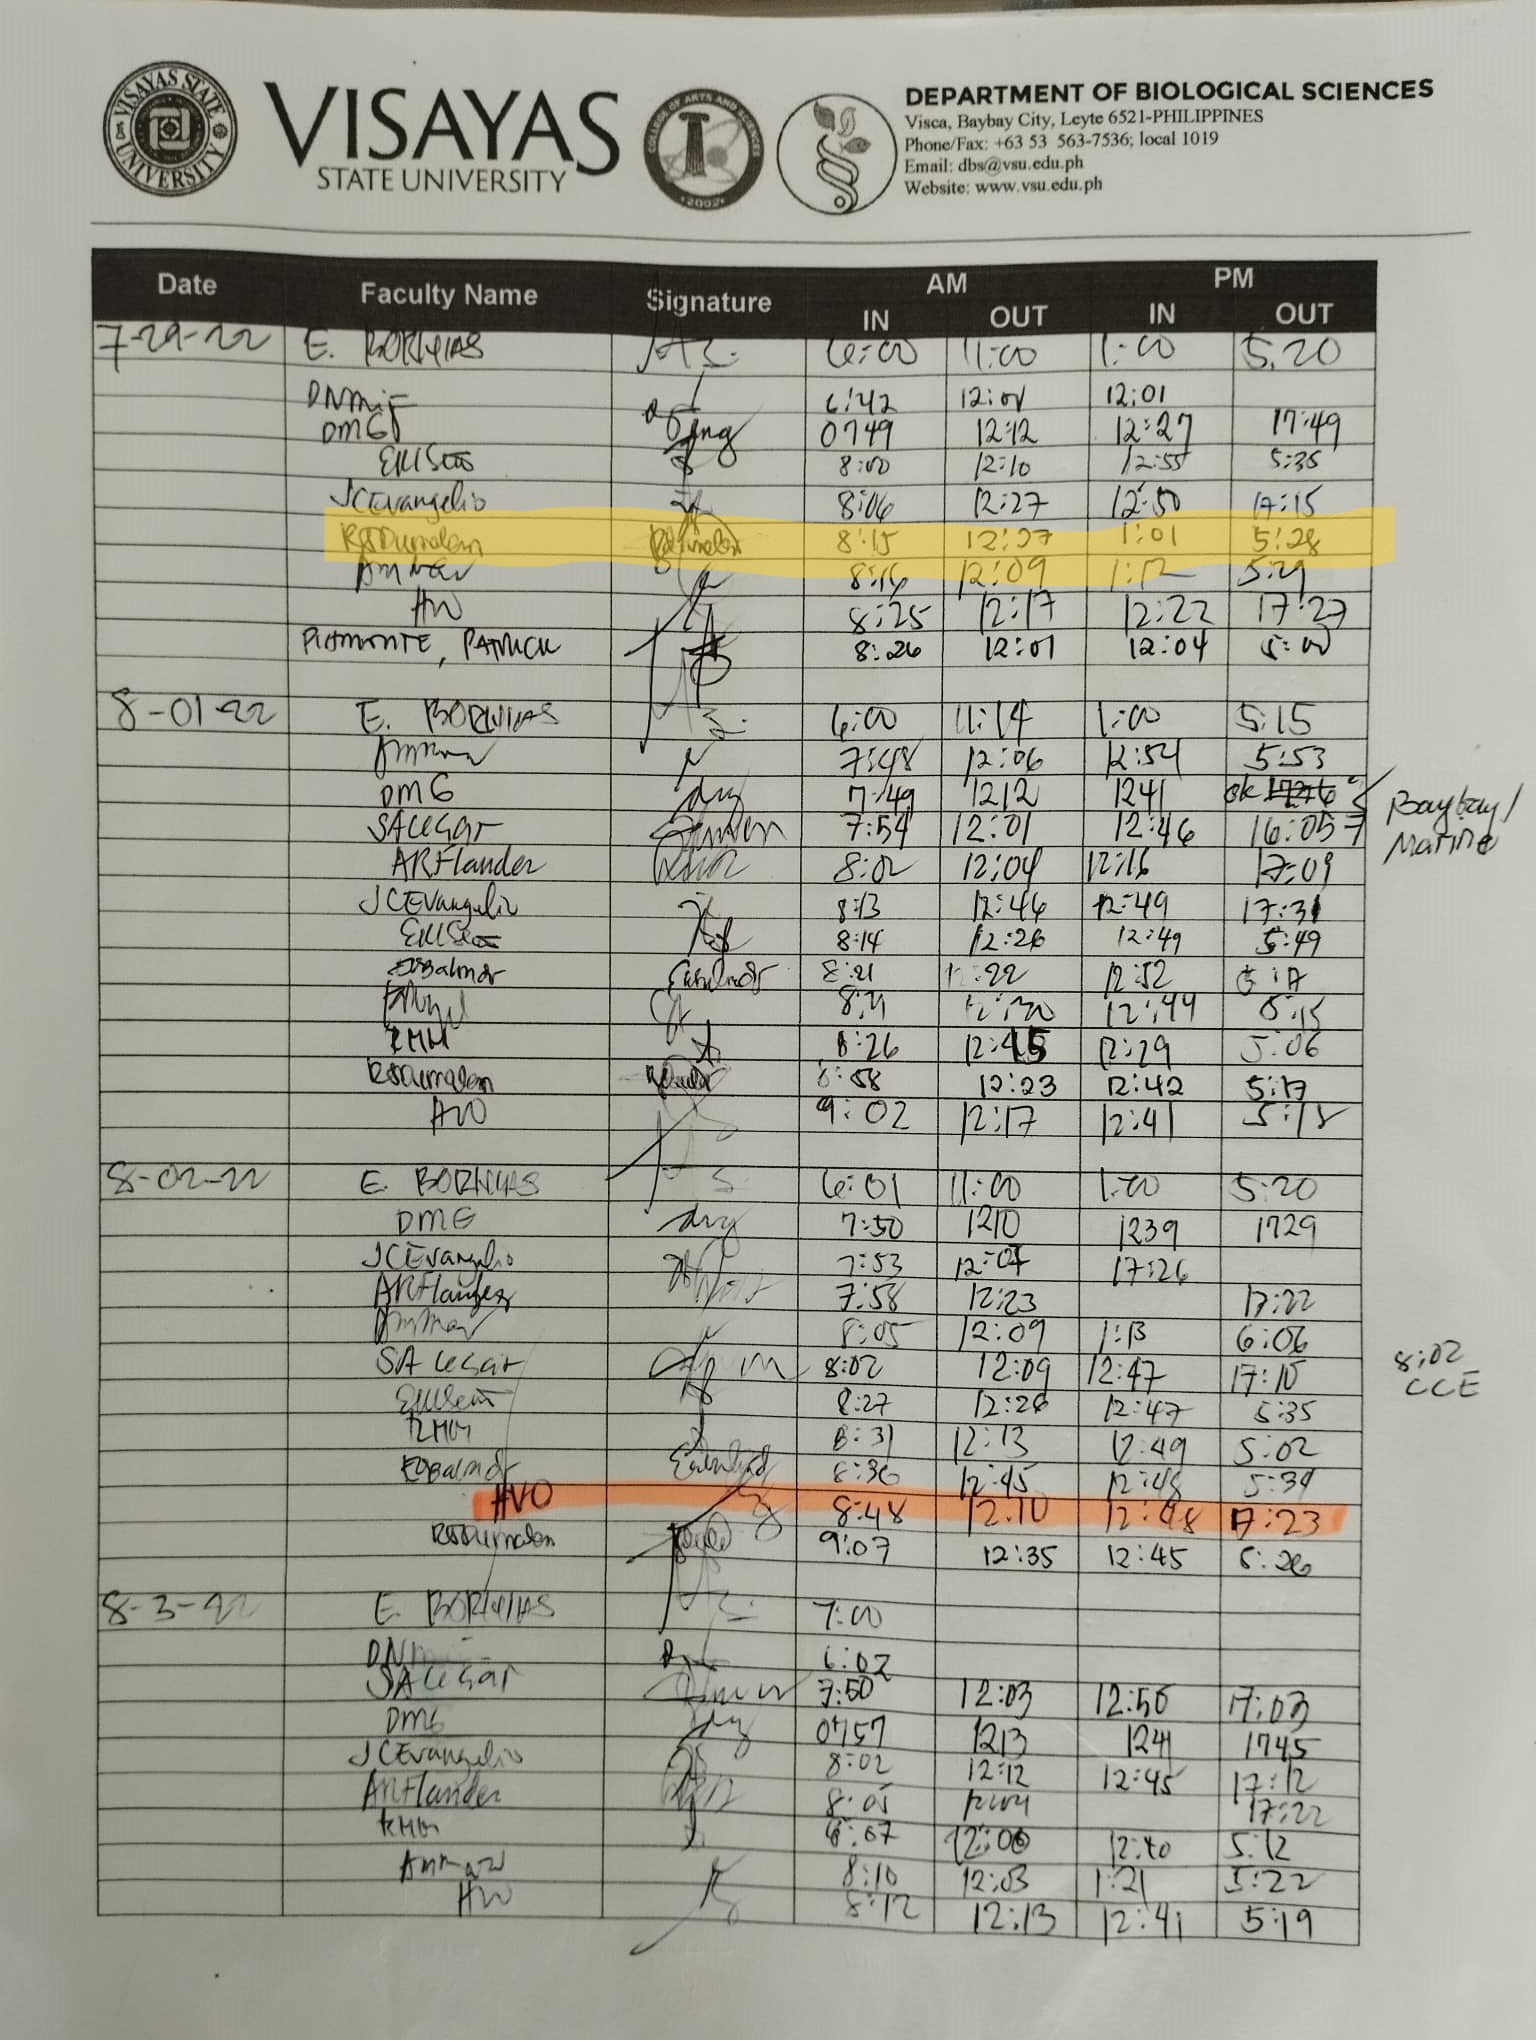 VISAYAS STATE UNIVERSITY
VISAYAS
STATE UNIVERSITY
COLLEGE OF ARTS AND SCIENCES
2002
DEPARTMENT OF BIOLOGICAL SCIENCES
Visca, Baybay City, Leyte 6521-PHILIPPINES
Phone/Fax: +63 53 563-7536; local 1019
Email: dbs@vsu.edu.ph
Website: www.vsu.edu.ph
Date Faculty Name Signature AM PM
IN OUT IN OUT
7-29-22 E. 6:00 11:00 1:00 5:20
6:42 12:01 12:01
DMG 0749 12:12 12:27 17:49
8:00 12:10 12:55 5:35
JCEvangelio 8:06 12:27 12:50 17:15
RSDumalan 8:15 12:27 1:01 5:28
8:16 12:09 1:12 5:29
HVO 8:25 12:17 12:22 17:27
PIAMONTE, PATRICK 8:26 12:01 12:04 5:00
8-01-22 E. 6:00 11:14 1:00 5:15
7:48 12:06 12:54 5:53
DMG 7:49 1212 1241 ok
SALESAR 7:54 12:01 12:46 16:05
Baybay/
Marine
ARFlander 8:02 12:04 12:16 17:09
JCEvangelio 8:13 12:46 12:49 17:31
8:14 12:26 12:49 5:49
8:21 12:22 12:52 5:17
8:21 12:30 12:44 5:15
RHM 8:26 12:15 12:29 5:06
RSDumalan 8:58 12:23 12:42 5:17
HVO 9:02 12:17 12:41 5:18
8-02-22 E. 6:01 11:00 1:00 5:20
DMG 7:50 1210 1239 1729
JCEvangelio 7:53 12:07 17:26
ARFlander 7:58 12:23 17:22
8:05 12:09 1:13 6:06
8:02 12:09 12:47 17:10
8:02
CCE
8:27 12:26 12:47 5:35
RHM 8:31 12:13 12:49 5:02
8:36 12:45 12:48 5:34
HVO 8:48 12:10 12:48 17:23
RSDumalan 9:07 12:35 12:45 5:26
8-3-22 E. 7:00
6:02
7:50 12:03 12:50 17:03
DMG 0757 1213 1241 1745
JCEvangelio 8:02 12:12 12:45 17:12
ARFlander 8:05 17:22
RHM 8:07 12:06 12:40 5:12
8:10 12:03 1:21 5:22
HVO 8:12 12:13 12:41 5:19